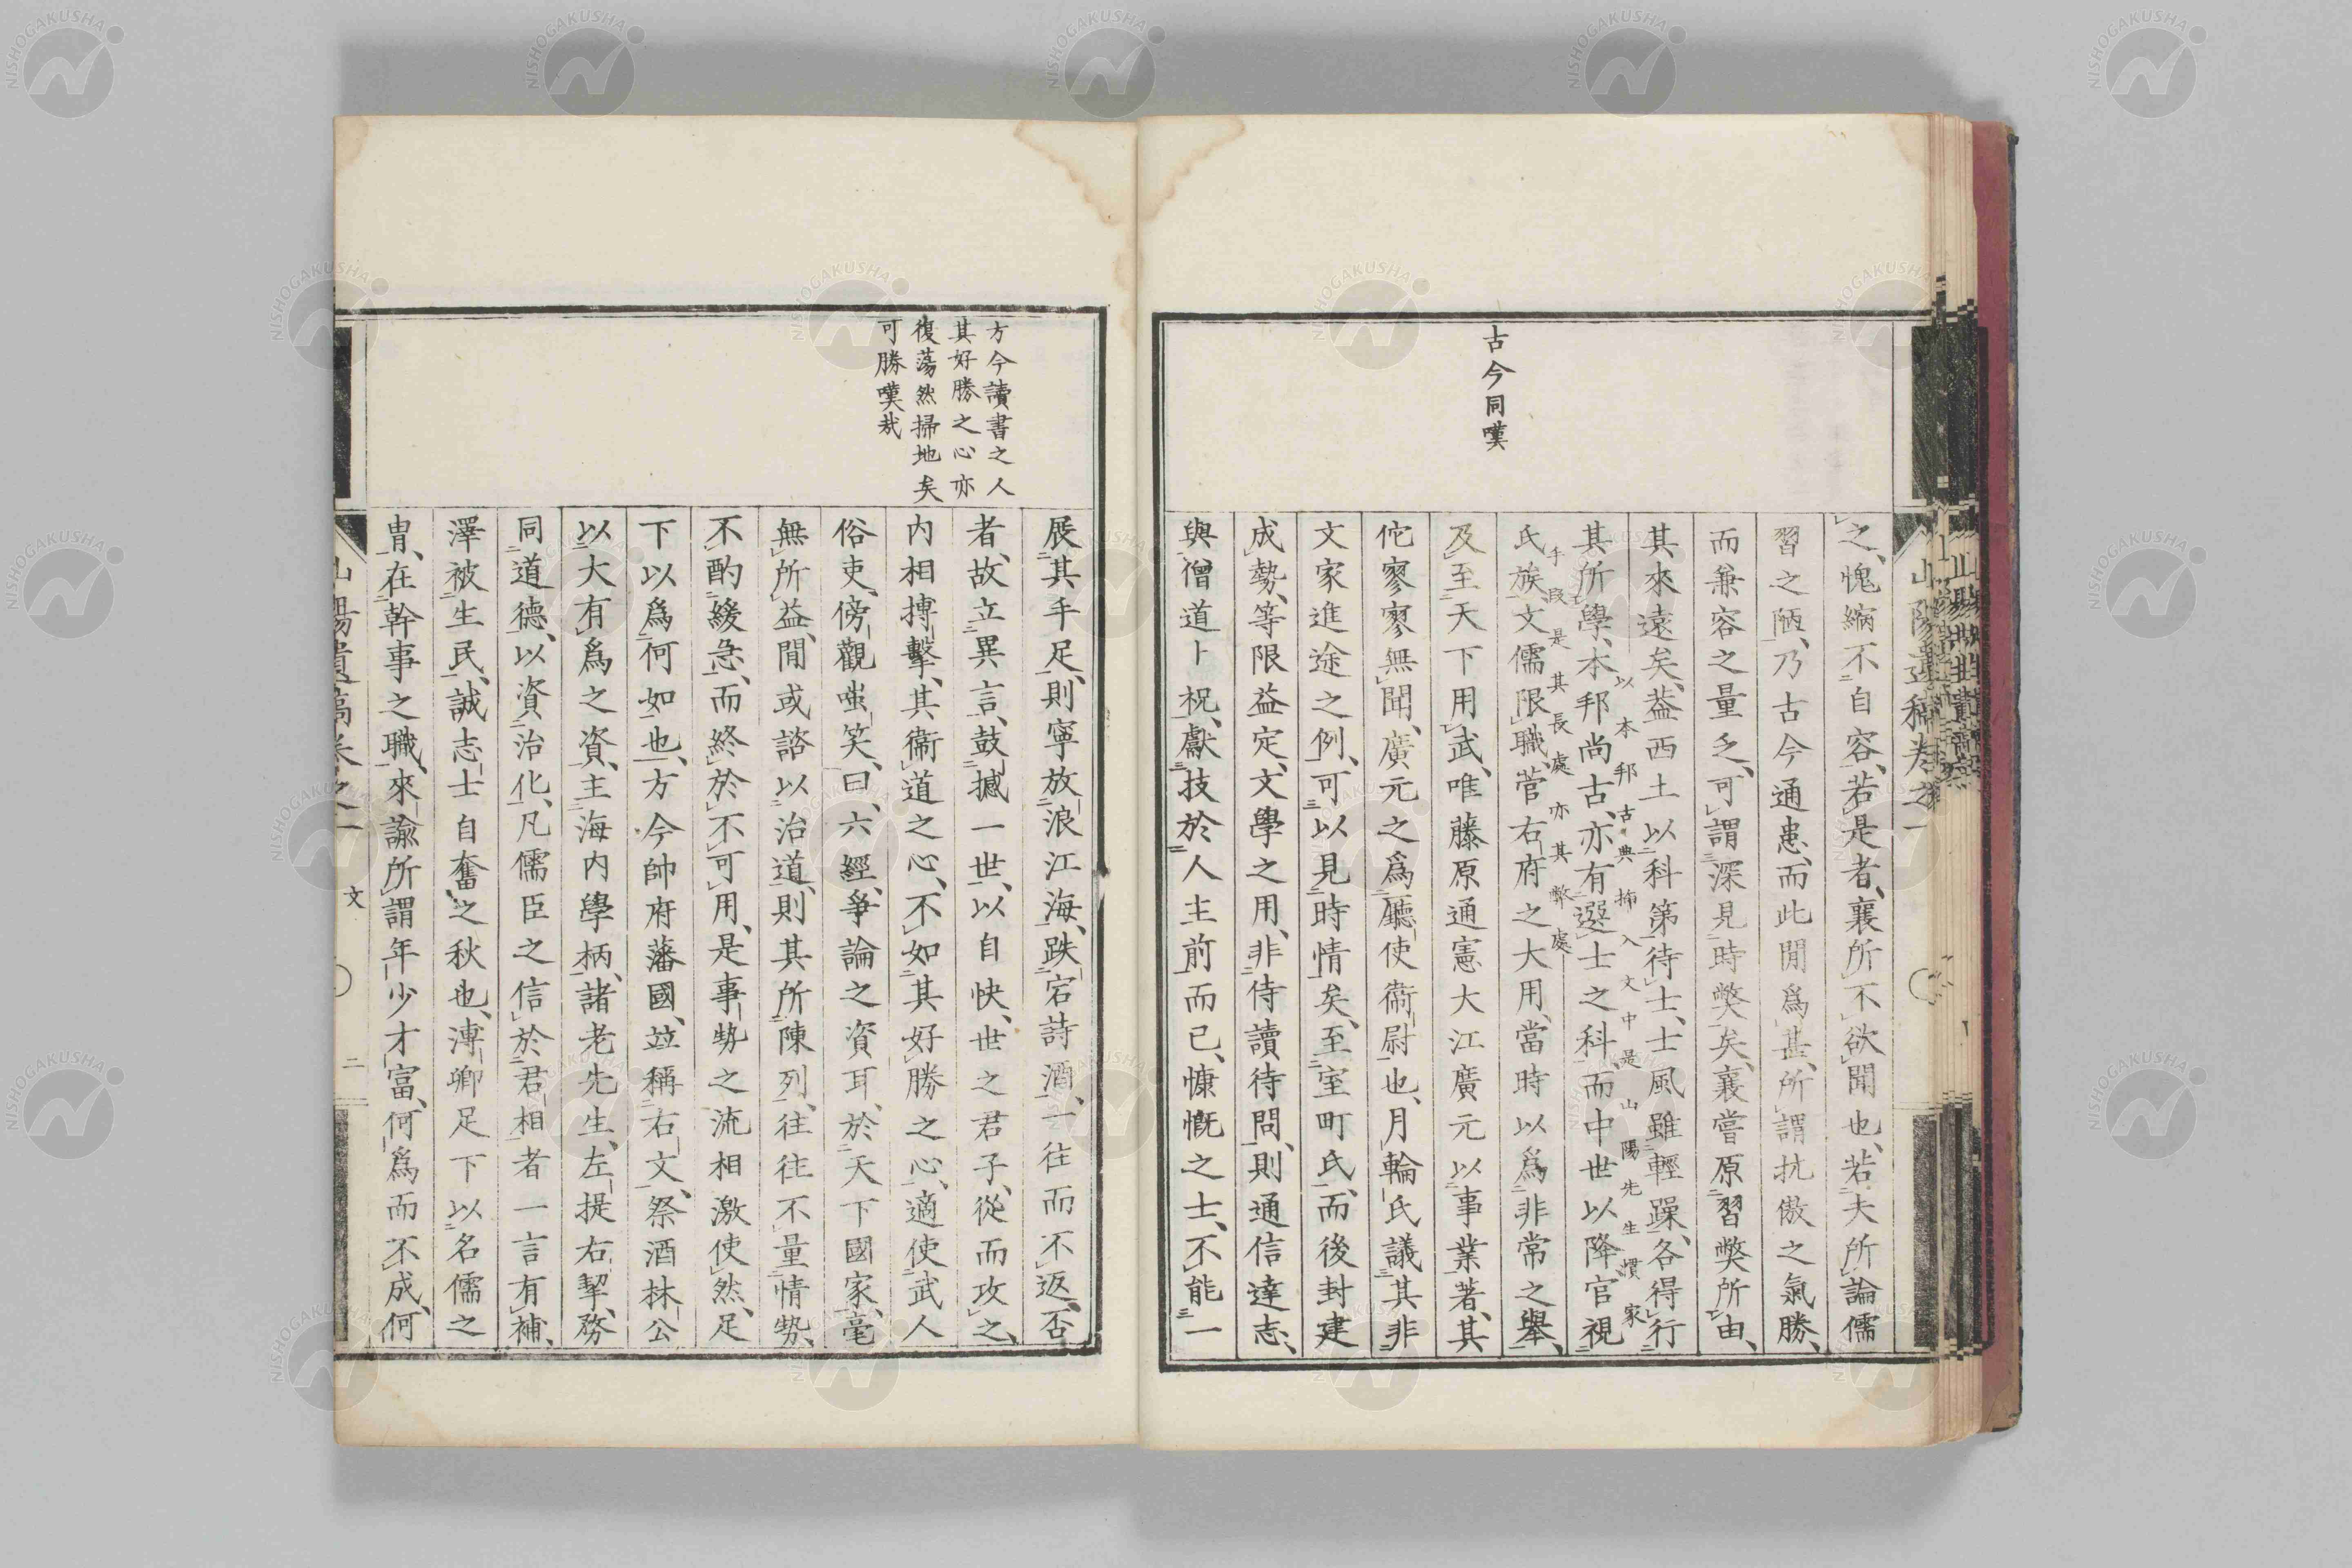 古今同嘆
之、愧縮不自容、若是者、襄所不欲聞也、若夫所論儒
習之陋、乃古今通患、而此間爲甚、所謂抗傲之氣勝、
而兼容之量乏、可謂深見時弊矣、襄嘗原習弊所由、
其來遠矣、蓋西土以科第待士、士風雖輕躁、各得行
以本邦古典插入文中是山陽先生慣家
其所學、本邦尚古、亦有選士之科、而中世以降、官視
手段是其長處亦其弊處
氏族、文儒限職、菅右府之大用、當時以爲非常之舉、
及至天下用武、唯藤原通憲大江廣元以事業著、其
佗寥寥無聞、廣元之爲廳使衞尉也、月輪氏議其非
文家進途之例、可以見時情矣、至室町氏、而後封建
成勢、等限益定、文學之用、非待讀待問、則通信達志、
與僧道卜祝、獻技於人主前而已、慷慨之士、不能一
山陽遺稿卷之一
方今讀書之人
其好勝之心亦
復蕩然掃地矣
可勝嘆哉
展其手足、則寧放浪江海、跌宕詩酒、一往而不返、否
者、故立異言、鼓撼一世、以自快、世之君子、從而攻之、
内相搏擊、其衞道之心、不如其好勝之心、適使武人
俗吏、傍觀嗤笑、曰、六經、爭論之資耳、於天下國家、毫
無所益、間或諮以治道、則其所陳列、往往不量情勢、
不酌緩急、而終於不可用、是事勢之流相激使然、足
下以爲何如也、方今帥府藩國、竝稱右文、祭酒林公
以大有爲之資、主海内學柄、諸老先生、左提右挈、務
同道德、以資治化、凡儒臣之信於君相者、一言有補、
澤被生民、誠志士自奮之秋也、溥卿足下以名儒之
冑、在幹事之職、來諭所謂年少才富、何爲而不成、何
山陽遺稿卷之一
文
二